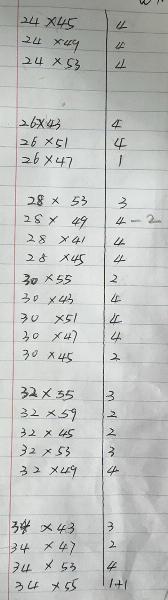 24 × 45 4
24 × 49 4
24 × 53 4
26 × 43 4
26 × 51 4
26 × 47 1
28 × 53 3
28 × 49 4 - 2
28 × 41 4
28 × 45 4
30 × 55 2
30 × 43 4
30 × 51 4
30 × 47 4
30 × 45 2
32 × 55 3
32 × 59 2
32 × 45 2
32 × 53 3
32 × 49 4
34 × 43 3
34 × 47 2
34 × 53 4
34 × 55 1+1